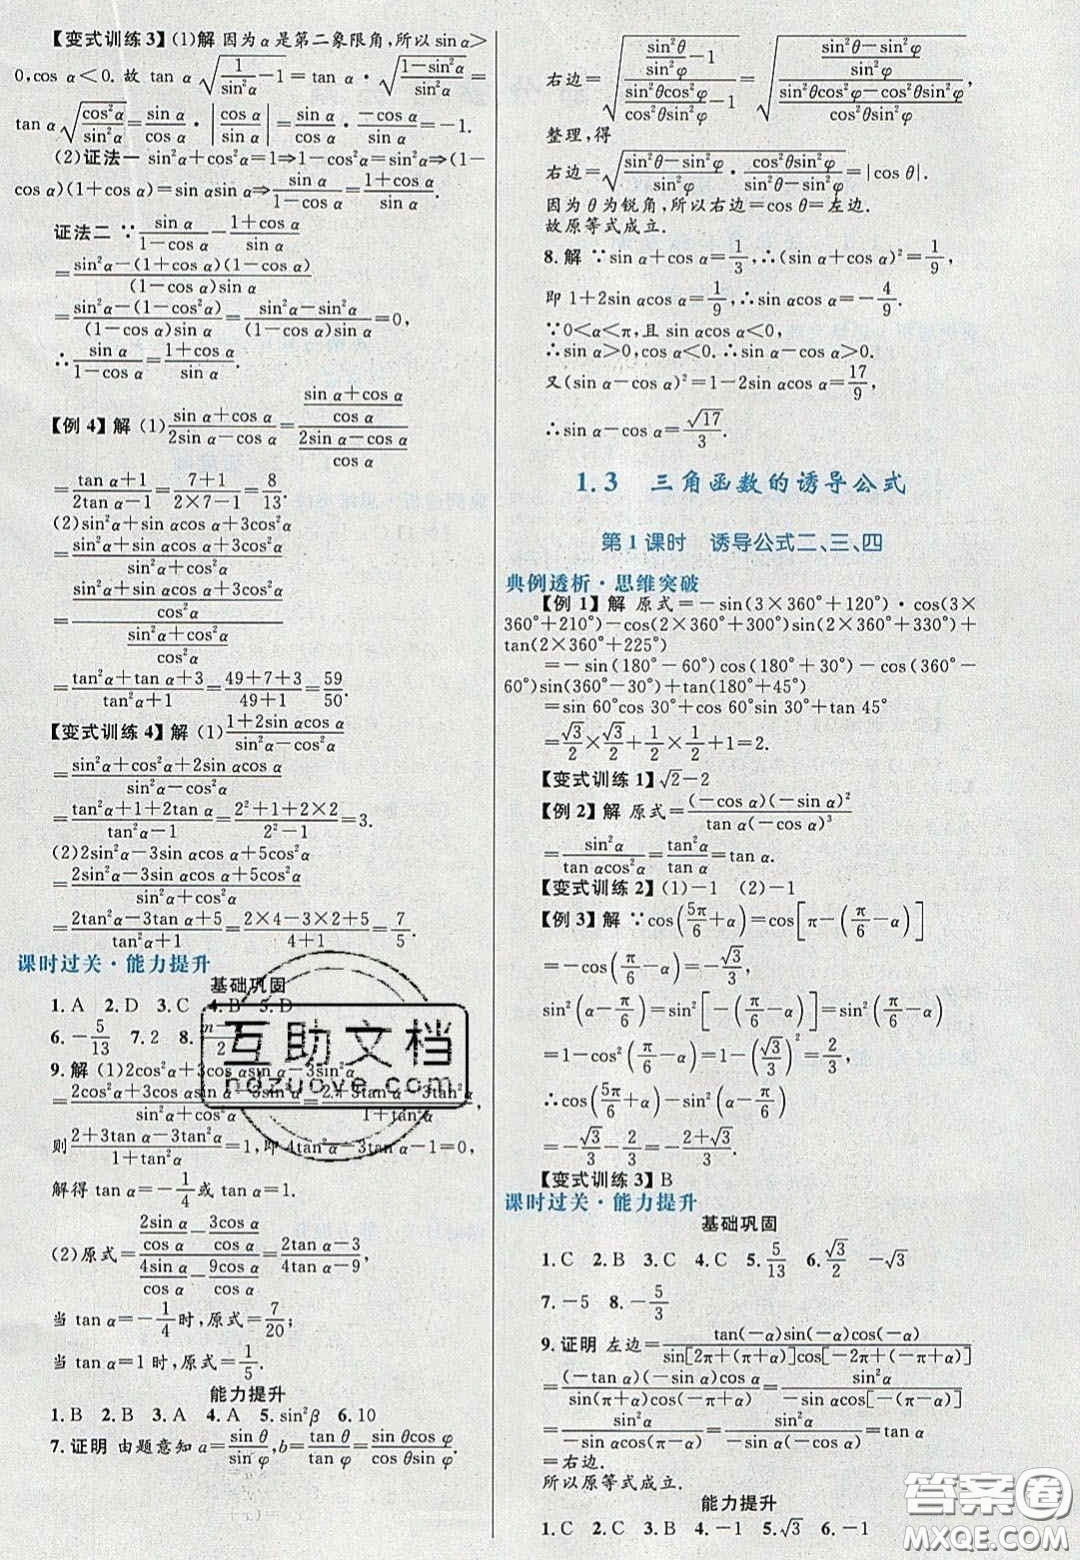 【变式训练3】(1)解 因为α是第二象限角,所以 sin α>
0,cos α<0. 故 tan α√(1/sin²α−1)=tan α·√((1−sin²α)/sin²α)=
tan α√(cos²α/sin²α)=sin α/cos α·|cos α/sin α|=sin α/cos α·−cos α/sin α=−1.
(2)证法一 sin²α+cos²α=1⇒1−cos²α=sin²α⇒(1−
cos α)(1+cos α)=sin αsin α⇒sin α/(1−cos α)=(1+cos α)/sin α.
证法二 ∵sin α/(1−cos α)−(1+cos α)/sin α
=(sin²α−(1+cos α)(1−cos α))/((1−cos α)sin α)
=(sin²α−(1−cos²α))/((1−cos α)sin α)=(sin²α−sin²α)/((1−cos α)sin α)=0,
∴sin α/(1−cos α)=(1+cos α)/sin α.
【例 4】解 (1)(sin α+cos α)/(2sin α−cos α)=((sin α+cos α)/cos α)/((2sin α−cos α)/cos α)
=(tan α+1)/(2tan α−1)=(7+1)/(2×7−1)=8/13.
(2)sin²α+sin αcos α+3cos²α
=(sin²α+sin αcos α+3cos²α)/(sin²α+cos²α)
=((sin²α+sin αcos α+3cos²α)/cos²α)/((sin²α+cos²α)/cos²α)
=(tan²α+tan α+3)/(tan²α+1)=(49+7+3)/(49+1)=59/50.
【变式训练 4】解 (1)(1+2sin αcos α)/(sin²α−cos²α)
=(sin²α+cos²α+2sin αcos α)/(sin²α−cos²α)
=(tan²α+1+2tan α)/(tan²α−1)=(2²+1+2×2)/(2²−1)=3.
(2)2sin²α−3sin αcos α+5cos²α
=(2sin²α−3sin αcos α+5cos²α)/(sin²α+cos²α)
=(2tan²α−3tan α+5)/(tan²α+1)=(2×4−3×2+5)/(4+1)=7/5.
课时过关·能力提升
基础巩固
1. A 2. D 3. C 4. B 5. D
6. −5/13 7. 2 8.
9. 解 (1)2cos²α+3cos αsin α−3sin²α
=(2cos²α+3cos αsin α−3sin²α)/(sin²α+cos²α)=(2+3tan α−3tan²α)/(1+tan²α),
则(2+3tan α−3tan²α)/(1+tan²α)=1,即 4tan²α−3tan α−1=0,
解得 tan α=−1/4或 tan α=1.
(2)原式=(2sin α/cos α−3cos α/cos α)/(4sin α/cos α−9cos α/cos α)=(2tan α−3)/(4tan α−9),
当 tan α=−1/4时,原式=7/20;
当 tan α=1时,原式=1/5.
能力提升
1. B 2. B 3. A 4. A 5. sin²β 6. 10
7. 证明 由题意知 a=sin θ/sin φ,b=tan θ/tan φ=sin θcos φ/cos θsin φ.
右边=√((sin²θ/sin²φ−1)/(sin²θcos²φ/cos²θsin²φ−1))=√(((sin²θ−sin²φ)/sin²φ)/((sin²θcos²φ−cos²θsin²φ)/cos²θsin²φ)).
整理,得
右边=√((sin²θ−sin²φ)/sin²φ·cos²θsin²φ/(sin²θ−sin²φ))=|cos θ|.
因为 θ为锐角,所以右边=cos θ=左边.
故原等式成立.
8. 解 ∵sin α+cos α=1/3,∴(sin α+cos α)²=1/9,
即 1+2sin αcos α=1/9,∴sin αcos α=−4/9.
∵0<α<π,且 sin αcos α<0,
∴sin α>0,cos α<0. ∴sin α−cos α>0.
又(sin α−cos α)²=1−2sin αcos α=17/9,
∴sin α−cos α=√17/3.
1.3 三角函数的诱导公式
第 1 课时 诱导公式二、三、四
典例透析·思维突破
【例 1】解 原式=−sin(3×360°+120°)·cos(3×
360°+210°)−cos(2×360°+300°)sin(2×360°+330°)+
tan(2×360°+225°)
=−sin(180°−60°)cos(180°+30°)−cos(360°−
60°)sin(360°−30°)+tan(180°+45°)
=sin 60°cos 30°+cos 60°sin 30°+tan 45°
=√3/2×√3/2+1/2×1/2+1=2.
【变式训练 1】√2−2
【例 2】解 原式=(−cos α)(−sin α)²/(tan α(−cos α)³)
=sin²α/(tan αcos²α)=tan²α/tan α=tan α.
【变式训练 2】(1)−1 (2)−1
【例 3】解 ∵cos(5π/6+α)=cos[π−(π/6−α)]
=−cos(π/6−α)=−√3/3,
sin²(α−π/6)=sin²[−(π/6−α)]=sin²(π/6−α)
=1−cos²(π/6−α)=1−(√3/3)²=2/3,
∴cos(5π/6+α)−sin²(α−π/6)
=−√3/3−2/3=−(2+√3)/3.
【变式训练 3】B
课时过关·能力提升
基础巩固
1. C 2. B 3. B 4. C 5. 5/13 6. √3/2 −√3
7. −5 8. −5/3
9. 证明 左边=tan(−α)sin(−α)cos(−α)/(sin[2π+(π+α)]cos[−2π+(−π+α)])
=(−tan α)(−sin α)cos α/(sin(π+α)cos(−π+α))=sin²α/(−sin αcos[−(π−α)])
=sin²α/(−sin αcos(π−α))=sin²α/(−sin α(−cos α))=sin α/cos α=tan α
=右边.
所以原等式成立.
能力提升
1. C 2. B 3. C 4. −1 5. √3 6. −1
互助文档
hdzuoye.com
答案圈
MXQE.COM